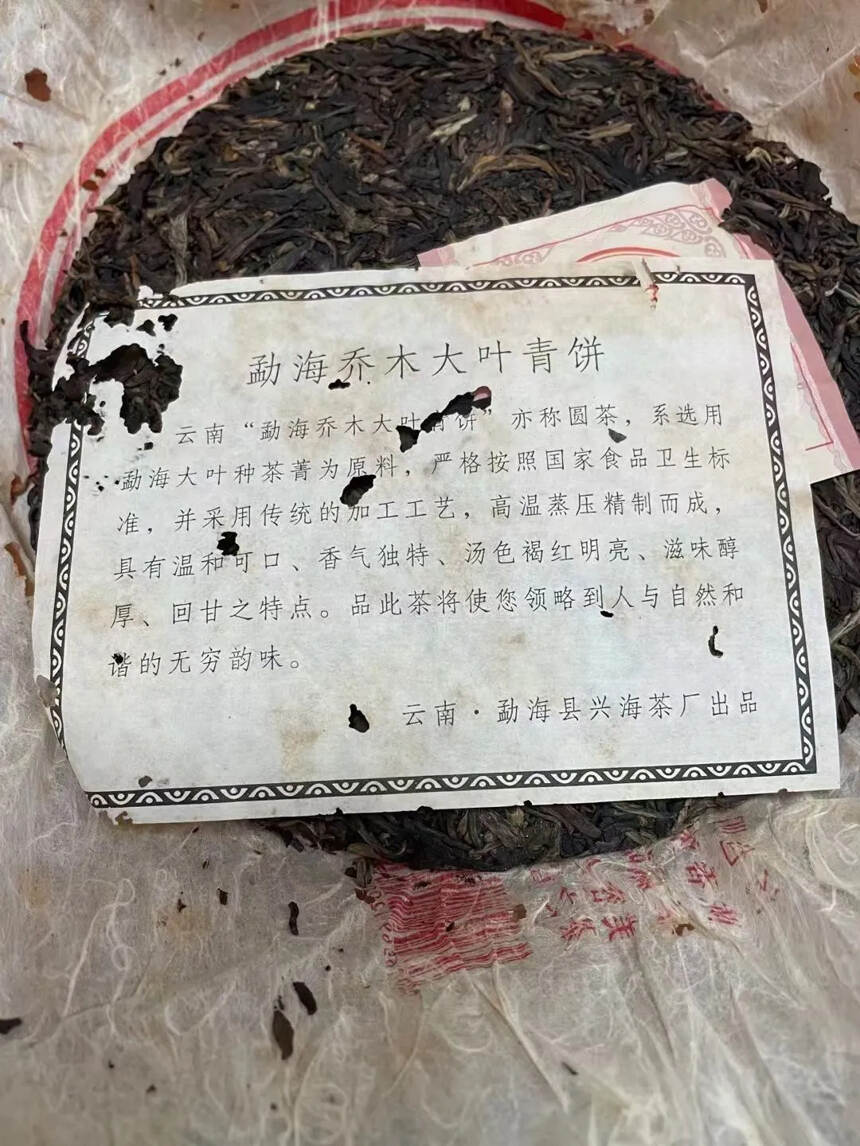 勐海乔木大叶青饼
云南“勐海乔木大叶青饼”亦称圆茶，系选用
勐海大叶种茶菁为原料，严格按照国家食品卫生标
准，并采用传统的加工工艺，高温蒸压精制而成，
具有温和可口、香气独特、汤色褐红明亮、滋味醇
厚、回甘之特点。品此茶将使您领略到人与自然和
谐的无穷韵味。
云南·勐海县兴海茶厂出品